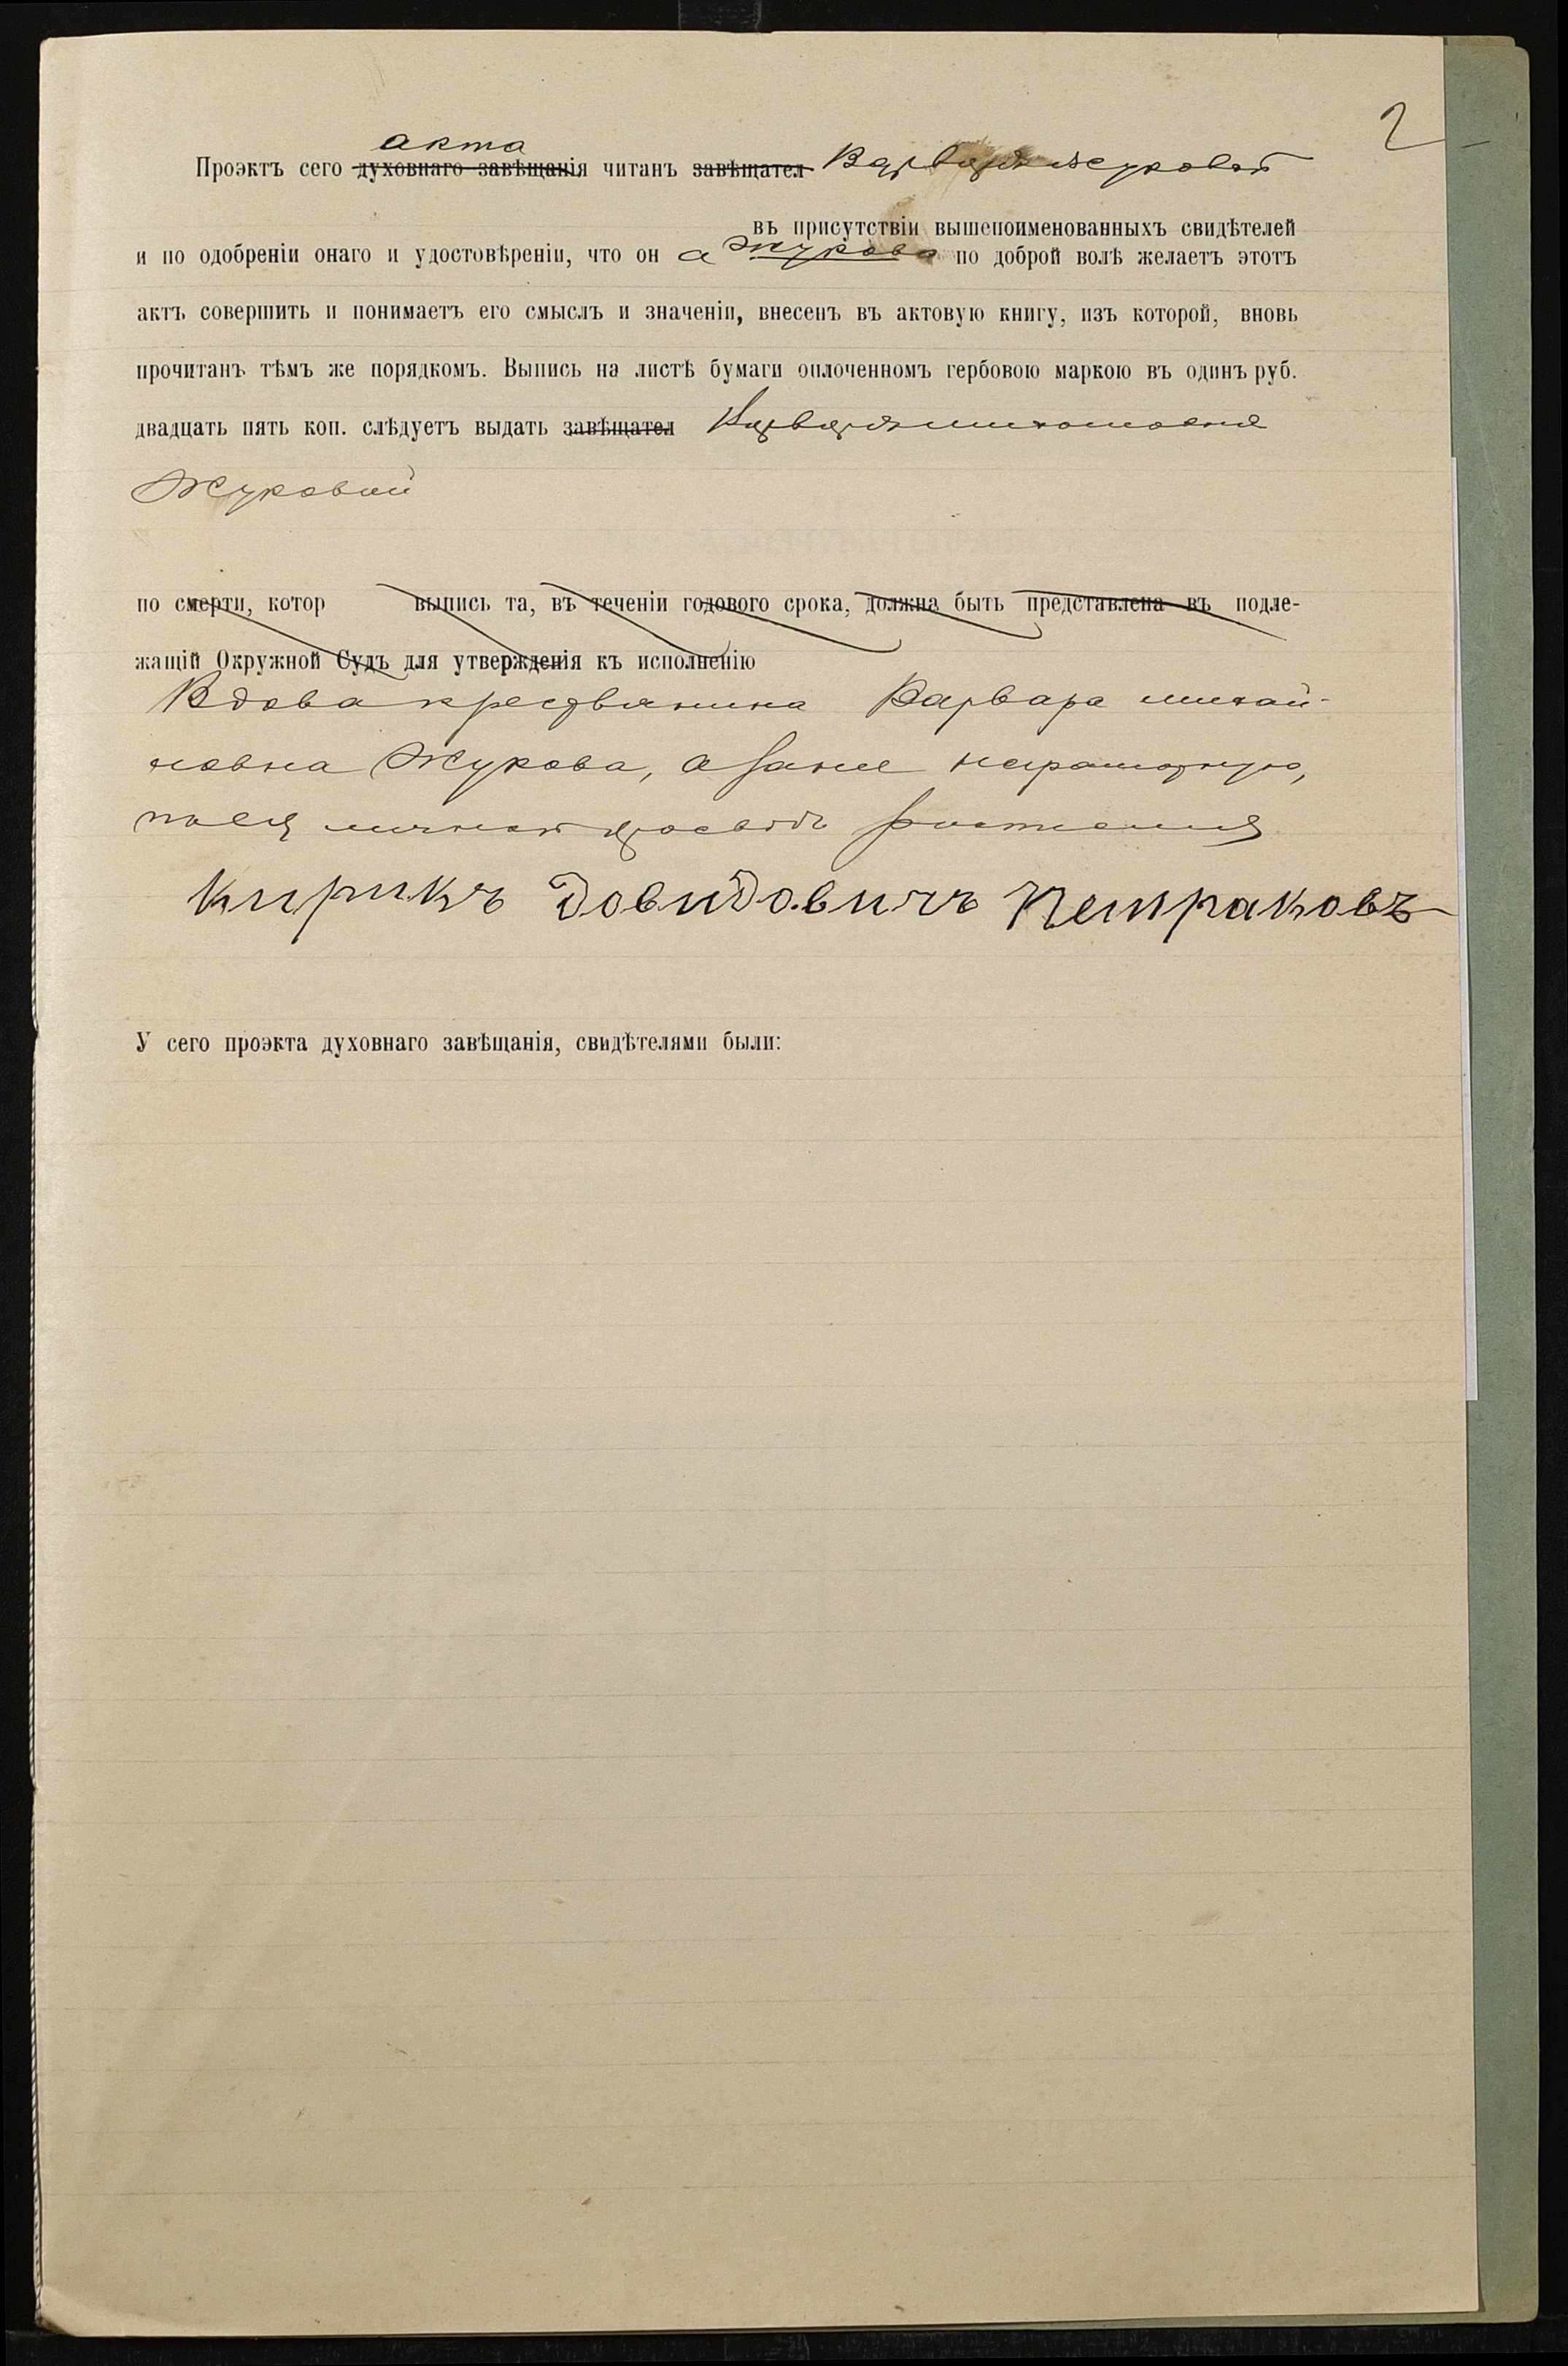 2
акта
Проэктъ сего духовнаго завѣщанія читанъ завѣщател Варварѣ Жуковой
въ присутствіи вышепоименованныхъ свидѣтелей
и по одобреніи онаго и удостовѣреніи, что он а Жукова по доброй волѣ желаетъ этотъ
актъ совершить и понимаетъ его смыслъ и значеніи, внесенъ въ актовую книгу, изъ которой, вновь
прочитанъ тѣмъ же порядкомъ. Выпись на листѣ бумаги оплоченномъ гербовою маркою въ одинъ руб.
двадцать пять коп. слѣдуетъ выдать завѣщател Варварѣ Михайловнѣ
Жуковой
по смерти, котор выпись та, въ теченіи годового срока, должна быть представлена въ подле-
жащій Окружной Судъ для утвержденія къ исполненію
Вдова крестьянина Варвара Михай-
ловна Жукова, а за нее неграмотную,
по ея личной просьбѣ росписался
Кирикъ Довидовичъ Петраковъ
У сего проэкта духовнаго завѣщанія, свидѣтелями были: